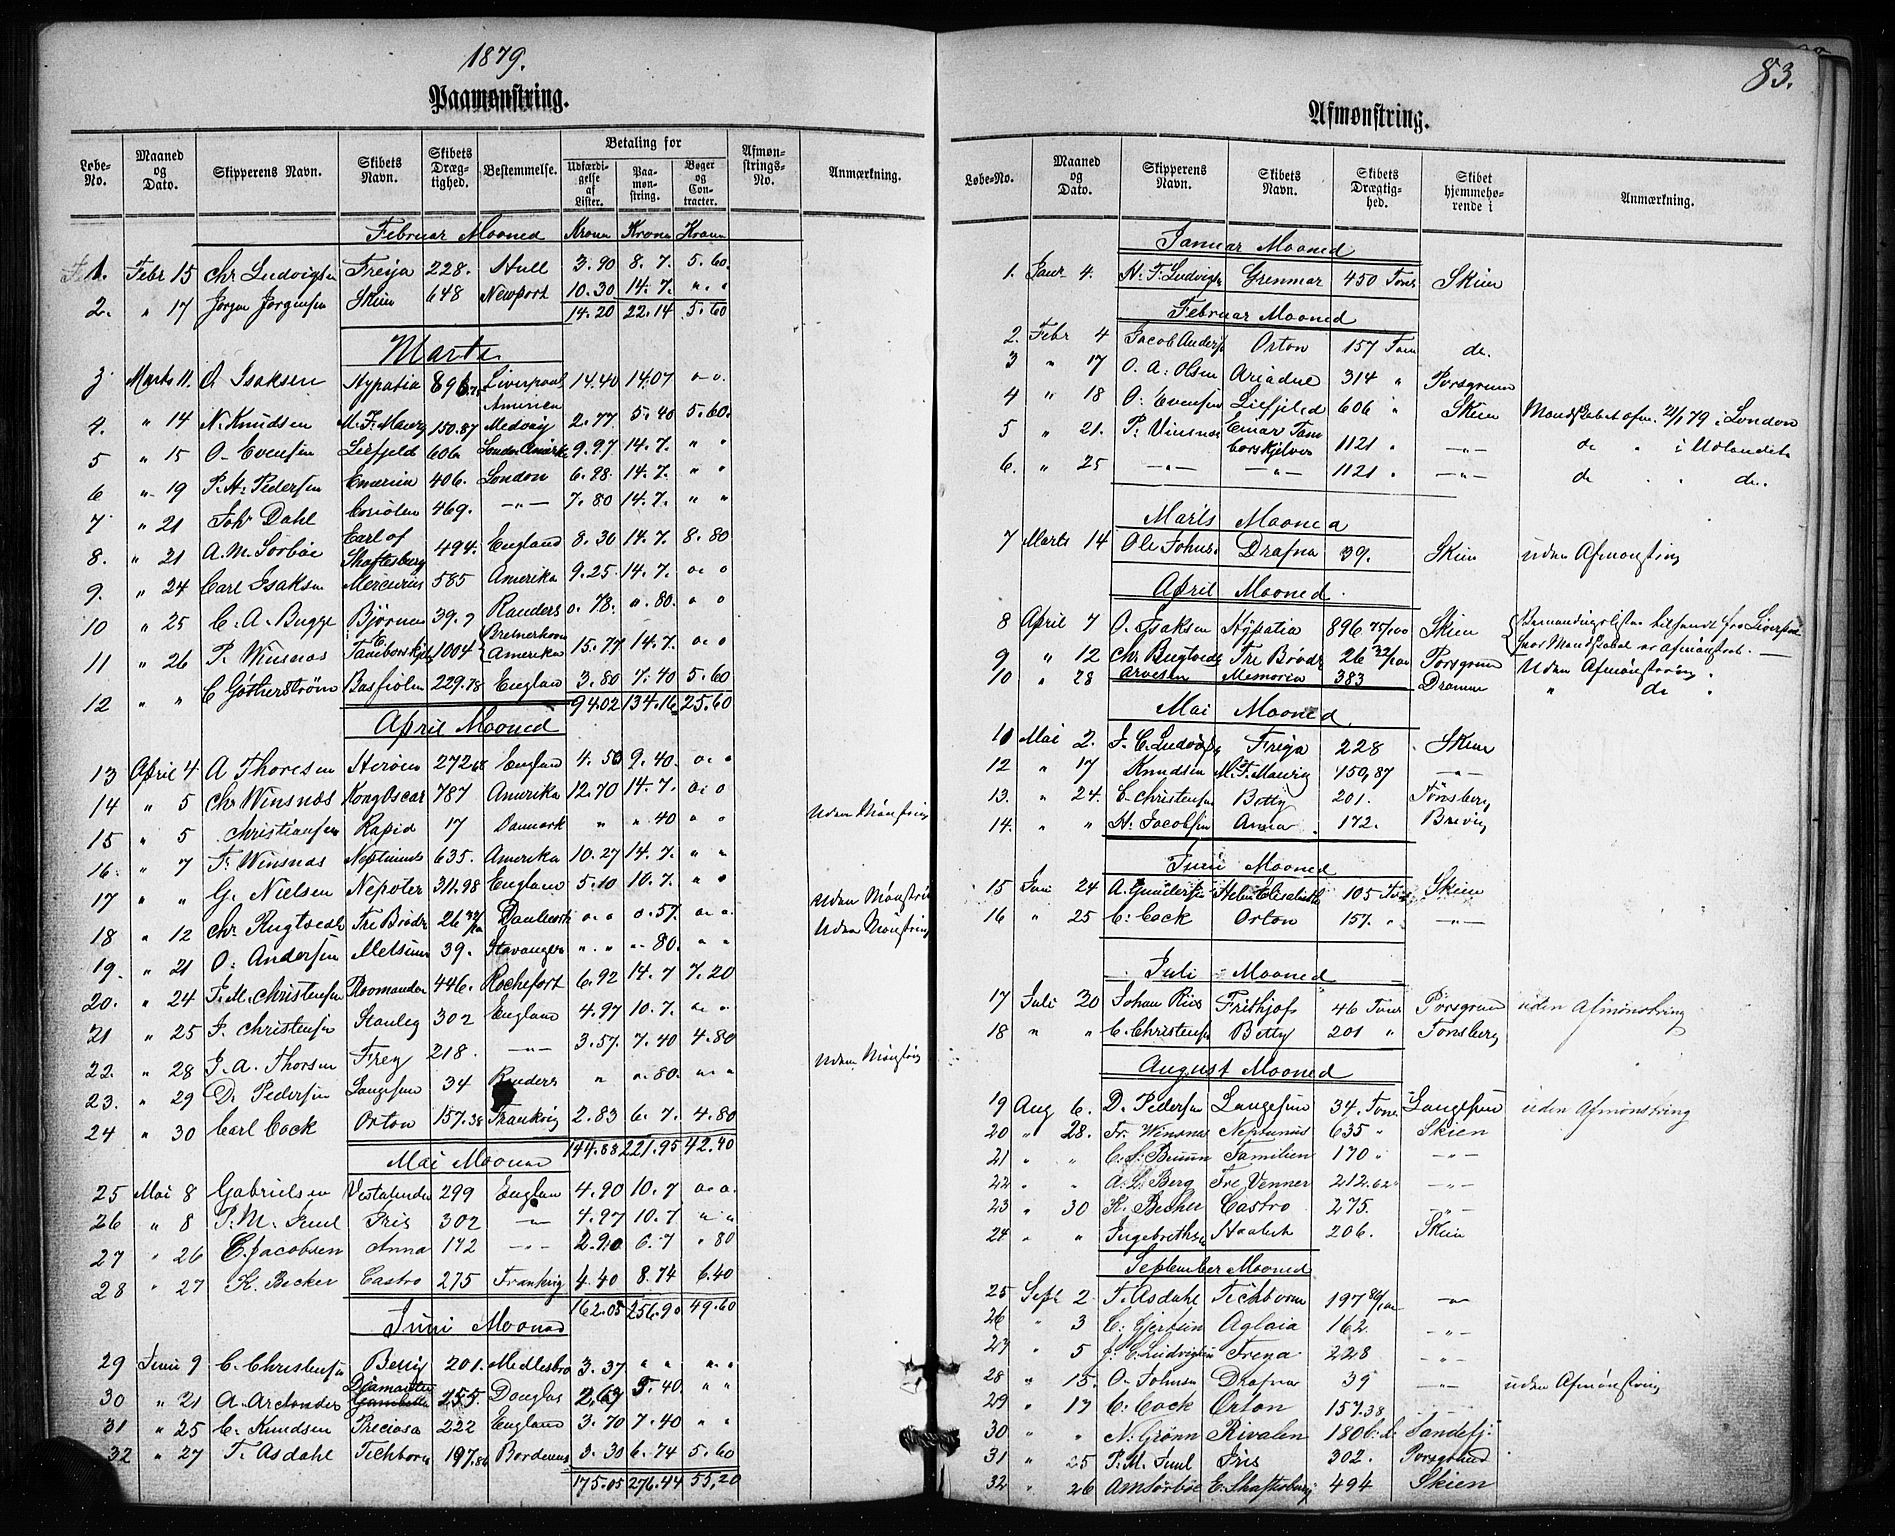 1879.
Paamønstring.
Løbe-No. Maaned og Dato. Skipperens Navn. Skibets Navn. Skibets Drægtighed. Bestemmelse. Betaling for Udfærdigelse af Lister. Paamønstring. Bøger og Contracter. Afmønstrings-No. Anmærkning.
Februar Maaned Kroner Kroner Kroner
1. Febr 15 Chr Ludvigsen Freija 228. Hull 3.90 8.7. 5.60.
2. " 17 Jørgen Jørgensen Skien 648 Newport 10.30 14.7. " "
14.20 22.14 5.60
Marts
3 Marts 11. O Isaksen Hypatia 896.75 Liverpool 14.40 14.07 o-o.
America
4. " 14 N. Knudsen M. F. Maurig 150.87 Medvay 2.77 5.40 5.60.
5 " 15 O. Evensen Liefjeld 606 London 9.97 14.7. " "
6 " 19 P. H. Pedersen 406. London 6.28 14.7. " "
7 " 21 Joh Dahl Coriolen 469. -"- 7.80 14.7. " "
8. " 21 A. M. Sørbøe Earl of Shaftesbury 494. England 8.30 14.7. 8.80
9. " 24 Carl Isaksen Mercurius 585 Amerika 9.25 14.7. o. o
10 " 25 C. A. Bugge Bjørnen 39.7 Randers o.78. ".80. " o
11 " 26 P. Winsnæs Tamborskjelv 1004 Bremerhaven Amerika 15.77 14.7. o. o
12 " " C Gøtherstrøm 229.78 England 3.80 7.40 5.60
94.02 134.16 25.60
April Maaned
13 April 4. A Thoresen Herøen 272.68 England 4.50 9.40. o. o
14 " 5 Chr Winsnæs Kong Oscar 787 Amerika 12.70 14.7. o. o
15 " 5 Christiansen Rapid 17 Danmark " ".40 " o Uden Mønstring
16. " 7 Fr Winsnæs Neptunus 635. Amerika 10.27 14.7. " "
17 " " G. Nielsen Nepoter 311.98 England 5.10 10.7. " " Uden Mønstring
18 " 12 Chr Rugtvedt Tre Brødr 26 32/100 o. o o.57. o. o. Uden Mønstring
19. " 21 O. Andersen 39. Stavanger ". " ".80. " "
20. " 24 J. M. Christensen 446. Rochefort 6.92 14.7 7.20
21 " 25 J. Christensen Stanley 302 England 4.97 10.7. o. o
22. " 28 J. A. Thorsen Frey 218. -"- 3.57. 7.40 4.80
23. " 29 D. Pedersen Langesun 34 Randers " ".80. " " Uden Mønstring
24 " 30 Carl Cock Orton 157.38 Frankrig 2.83 6.7. 4.80
144.68 221.95 42.40
Mai Maaned
25 Mai 8 Gabrielsen 299 England 4.90 10.7 o. o.
26 " 8 P. M. Juul Iris 302 -"- 4.97 10.7 " "
27 " 26 C. Jacobsen Anna 172 -"- 2.90 6.7 " 80
28 " 27 K. Becker Castro 275 Frankrig 4.40 8.74 6.40
162.05 256.90 49.60
Juni Maaned
29 Juni 9 C. Christensen Betty 201. Medlesbro 3.37 " " " "
30 " 21 A. Arctander Diamanten Gambetta 255. Douglas 2.69 5.40. " "
31 " 25 C. Knudsen Preciosa 222 England 3.70 7.40 " "
32 " 27 T. Asdahl Tichborn 197.86 Bordeaux 3.30 6.74 5.60
175.05 276.44 55,20
83.
Afmønstring.
Løbe-No. Maaned og Dato. Skipperens Navn. Skibets Navn. Skibets Drægtighed. Skibet hjemmehørende i Anmærkning.
Januar Maaned
1. Janr 4. H. F. Ludvigsen Grenmar 450 Tons Skien
Februar Maaned
2. Febr 4 Jacob Anders Orton 157 Tons do.
3 " 17 O. A. Olsen Ariadne 314 " Porsgrund
4 " 18 O. Evensen Liefjeld 606 " Skien Mandskabet afm. 21/1 79 i London
5 " 21. P. Vinsnæs Einar Tamborskjelver 1121 " -"- do " i Udlandet
6. " 25 -"- -"- 1121 " -"- do " " do.
Marts Maaned
7 Marts 14 Ole Johns. Drafna 39. Skien uden Afmønstring
April Maaned.
8 April 7 O. Isaksen Hypatia 896 75/100 Skien Bemandingslisten tilsendt fra Liverpool
hvor Mandskabet er afmønstret.
9 " 12 Chr Rugtvedt Tre Brødr 26 32/100 Porsgrund Uden Afmønstring
10 " 28 Arvesen Memoria 383 Drammen " do "
Mai Maaned.
11 Mai 2. J. C. Ludvigs Freija 228 Skien
12 " 17 Knudsen M. F. Maurig 150,87 -"-
13. " 24. C. Christensen Betty 201. Tønsberg
14. " " H. Jacobsen Anna 172. Brevig
Juni Maaned
15 Juni 24 A. Gundersen Helene Elisabeth 105 Tons Skien
16 " 25 C. Cock Orton 157. " -"-
Juli Maaned
17 Juli 20 Johan Riis Frithjof 46 Tons Porsgrund uden Afmønstring
18 " " C. Christensen Betty 201 " Tønsberg
August Maaned
19 Aug 6. D. Pedersen Langesun 34. Tons Langesun uden Afmønstring
20 " 28. Fr. Winsnæs Neptunus 635 " Skien
21 " " C. S. Bruun Familien 170 " -"-
22 " " A. L. Berg Tre Venner 212.62 -"-
23 " 30 K. Becker Castro 275. -"-
24 " " Ingebrethsen 206. Skien
September Maaned
25 Sept 2 T. Asdahl Tichborne 197 86/100 -"-
26 " 3 C. Gjertsen Aglaia 162 -"-
27 " 5 J. C. Ludvigsen Freya 228 -"-
28 " 15. O. Johnsen Drafna 39 -"- uden Afmønstring
29 " 17 C. Cock Orton 157.38
30 " " N. Grønn Rivalen 180 Sandefj.
31 " 25 P. M. Juul Iris 302. Porsgrund
32 " 26 AmSørbøe E. Shaftesbury 494 Skien